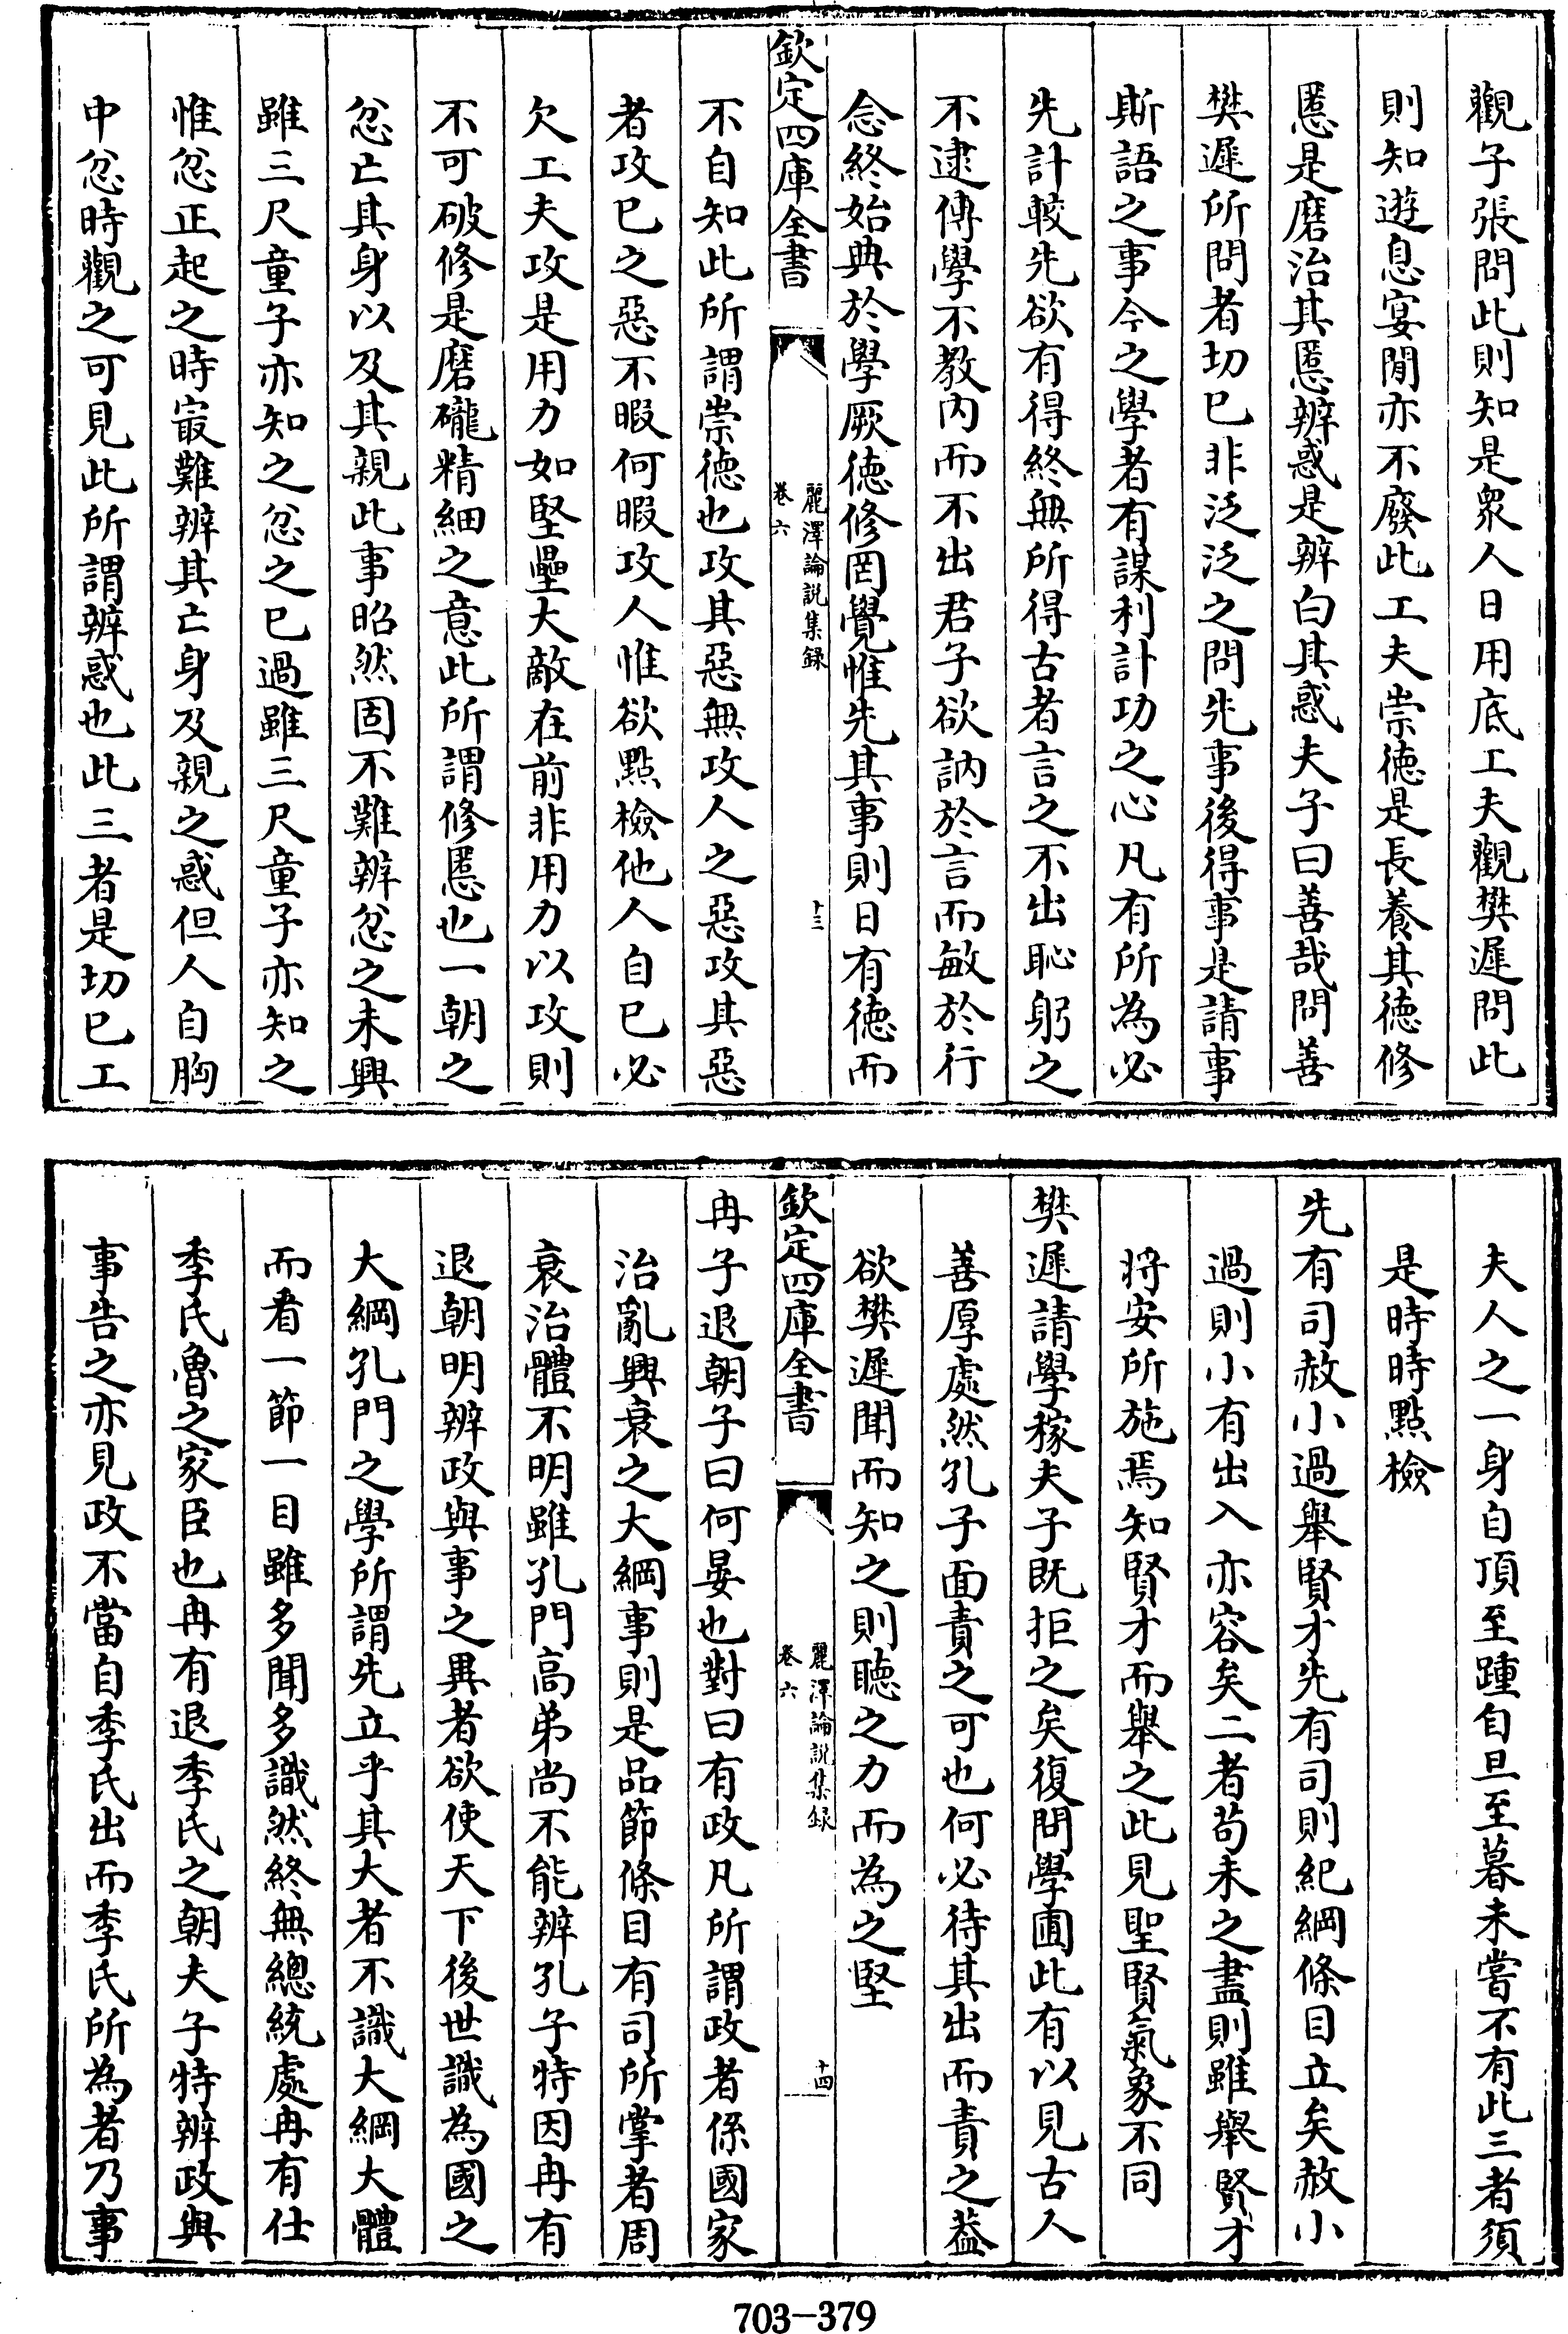 觀子張問此則知是衆人日用底工夫觀樊遲問此
則知遊息宴閒亦不廢此工夫崇徳是長養其徳修
慝是磨治其慝辨惑是辨白其惑夫子曰善哉問善
樊遲所問者切已非泛泛之問先事後得事是請事
斯語之事今之學者有謀利計功之心凡有所為必
先計較先欲有得終無所得古者言之不出恥躬之
不逮傅學不教内而不出君子欲訥於言而敏於行
念終始典於學厥徳修罔覺惟先其事則日有徳而
欽定四庫全書
麗澤論說集録
卷六
十三
不自知此所謂崇徳也攻其惡無攻人之惡攻其惡
者攻已之惡不暇何暇攻人惟欲點檢他人自已必
欠工夫攻是用力如堅壘大敵在前非用力以攻則
不可破修是磨礲精細之意此所謂修慝也一朝之
忿亡其身以及其親此事昭然固不難辨忿之未興
雖三尺童子亦知之忿之已過雖三尺童子亦知之
惟忿正起之時㝡難辨其亡身及親之惑但人自胸
中忿時觀之可見此所謂辨惑也此三者是切已工
夫人之一身自頂至踵自旦至暮未嘗不有此三者須
是時時點檢
先有司赦小過舉賢才先有司則紀綱條目立矣赦小
過則小有出入亦容矣二者茍未之盡則雖舉賢才
將安所施焉知賢才而舉之此見聖賢氣象不同
樊遲請學稼夫子既拒之矣復問學圃此有以見古人
善厚處然孔子面責之可也何必待其出而責之葢
欲樊遲聞而知之則聽之力而為之堅
欽定四庫全書
麗澤論說集録
卷六
十四
冉子退朝子曰何晏也對曰有政凡所謂政者係國家
治亂興衰之大綱事則是品節條目有司所掌者周
衰治體不明雖孔門高弟尚不能辨孔子特因冉有
退朝明辨政與事之異者欲使天下後世識為國之
大綱孔門之學所謂先立乎其大者不識大綱大體
而看一節一目雖多聞多識然終無總統處冉有仕
季氏魯之家臣也冉有退季氏之朝夫子特辨政與
事告之亦見政不當自季氏出而季氏所為者乃事
703-379